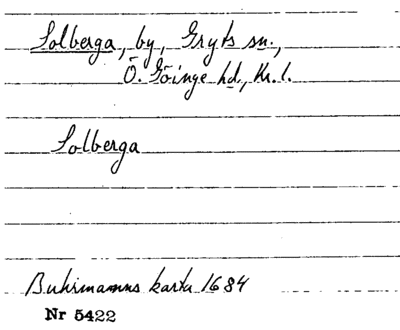 Solberga, by, Gryts sn.,
Ö. Göinge hd., Kr. l.
Solberga
Buhrmanns karta 1684
Nr 5422